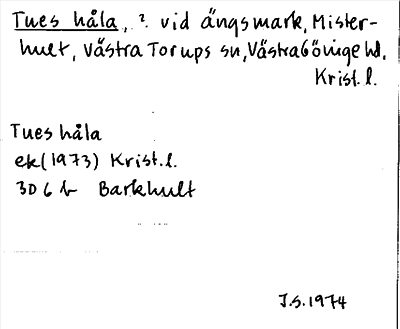 Tues håla, ? vid ängsmark, Mister-
hult, Västra Torups sn, Västra Göinge hd,
Krist. l.
Tues håla
ek (1973) Krist. l.
3D 6 b Barkhult
J.S. 1974